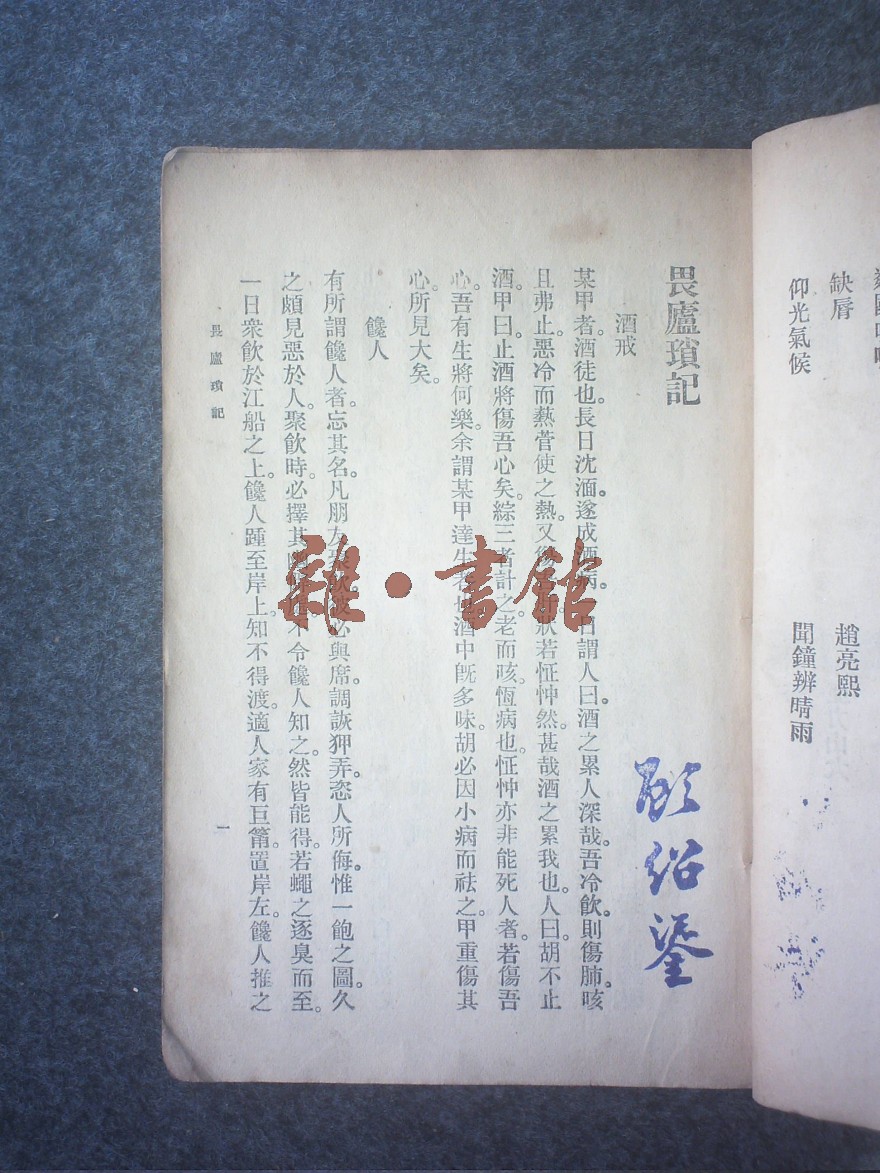 缺脣
趙亮熙
仰光氣候
聞鐘辨晴雨
畏廬瑣記
酒戒
某甲者。酒徒也。長日沈湎。遂成酒病。日謂人曰。酒之累人深哉。吾冷飲。則傷肺。咳
且弗止。惡冷而熱。菅使之熱。又狀若怔忡然。甚哉酒之累我也。人曰。胡不止
酒。甲曰。止酒將傷吾心矣。綜三者計之。老而咳。恆病也。怔忡亦非能死人者。若傷吾
心。吾有生將何樂。余謂某甲達生者也。酒中旣多味。胡必因小病而祛之。甲重傷其
心。所見大矣。
饞人
有所謂饞人者。忘其名。凡朋友聚飲。彼必與席。調詼狎弄。恣人所侮。惟一飽之圖。久
之頗見惡於人。聚飲時。必擇其不令饞人知之。然皆能得。若蠅之逐臭而至。
一日衆飲於江船之上。饞人踵至岸上。知不得渡。適人家有巨筩。置岸左。饞人推之
畏廬瑣記
一
顧紹鋆
雜·書館